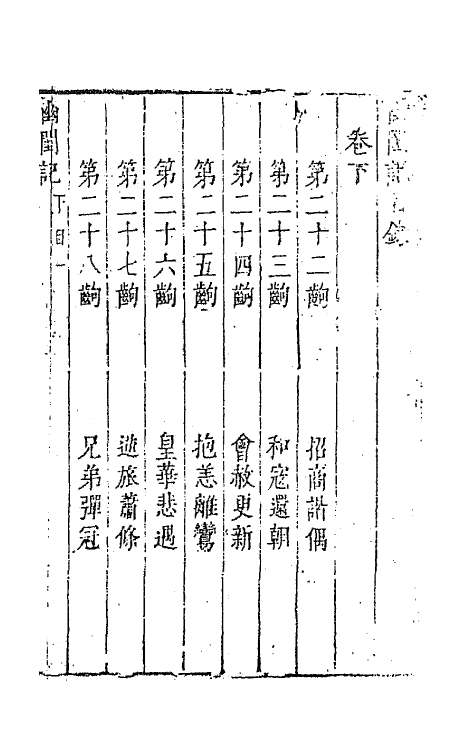 幽閨記目錄
卷下
第二十二齣 招商諧偶
第二十三齣 和寇還朝
第二十四齣 會赦更新
第二十五齣 抱恙離鸞
第二十六齣 皇華悲遇
第二十七齣 逆旅蕭條
第二十八齣 兄弟彈冠
幽閨記 下目 一